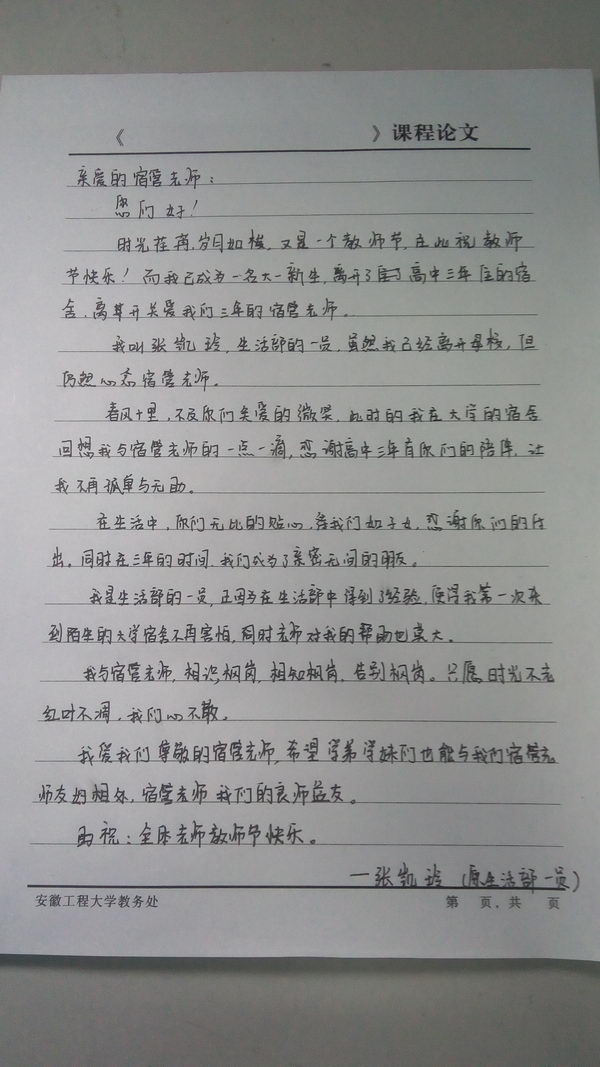 《 》课程论文
亲爱的宿管老师：
您们好！
时光荏苒，岁月如梭，又是一个教师节，在此祝教师
节快乐！而我已成为一名大一新生，离开了 高中三年住的宿
舍，离开关爱我们三年的宿管老师。
我叫张凯玲，生活部的一员，虽然我已经离开母校，但
仍然心念宿管老师。
春风十里，不及你们关爱的微笑，此时的我在大学的宿舍
回想我与宿管老师的一点一滴，感谢高中三年有你们的陪伴，让
我不再孤单与无助。
在生活中，你们无比的贴心，待我们如子女，感谢你们的付
出。同时在三年的时间，我们成为了亲密无间的朋友。
我是生活部的一员，正因为在生活部中得到了经验，使得我第一次来
到陌生的大学宿舍不再害怕，同时老师对我的帮助也莫大。
我与宿管老师，相识桐岗，相知桐岗，告别桐岗。只愿时光不老
红叶不凋，我们心不散。
我爱我们尊敬的宿管老师，希望学弟学妹们也能与我们宿管老
师友好相处，宿管老师我们的良师益友。
再祝：全体老师教师节快乐。
—张凯玲（原生活部一员）
安徽工程大学教务处 第 页，共 页